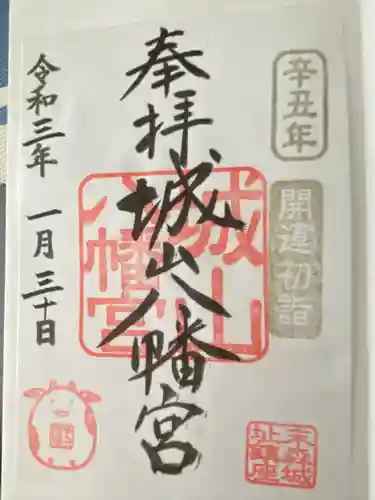 辛丑年
開運初詣
奉拝
城山八幡宮
城山
八幡宮
令和三年 一月三十日
末森城
址鎮座